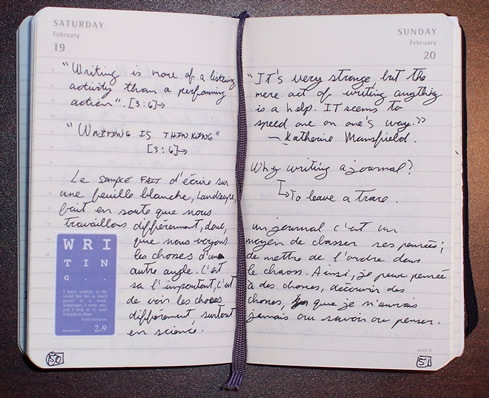 SATURDAY
February
19
"Writing is more of a listening
activity than a performing
action". [3:6]→
"WRITING IS THINKING"
[3:6]→
Le SIMPLE FAIT d'écrire sur
une feuille blanche, landscape,
fait en sorte que nous
travaillons différemment, donc,
que nous voyons
les choses d'un
autre angle. C'est
ça l'important, c'est
de voir les choses
différemment surtout
en science.
WRI
TIN
G
2.9
50
SUNDAY
February
20
"It's very strange, but the
mere act of writing anything
is a help. It seems to
speed one on one's way."
— Katherine Mansfield.
Why writing a journal?
↳ To leave a trace.
un journal c'est un
moyen de classer ses pensées;
de mettre de l'ordre dans
le chaos. Ainsi, je peux
à des choses, découvrir des
choses, que je n'aurais
jamais cru savoir ou penser.
51